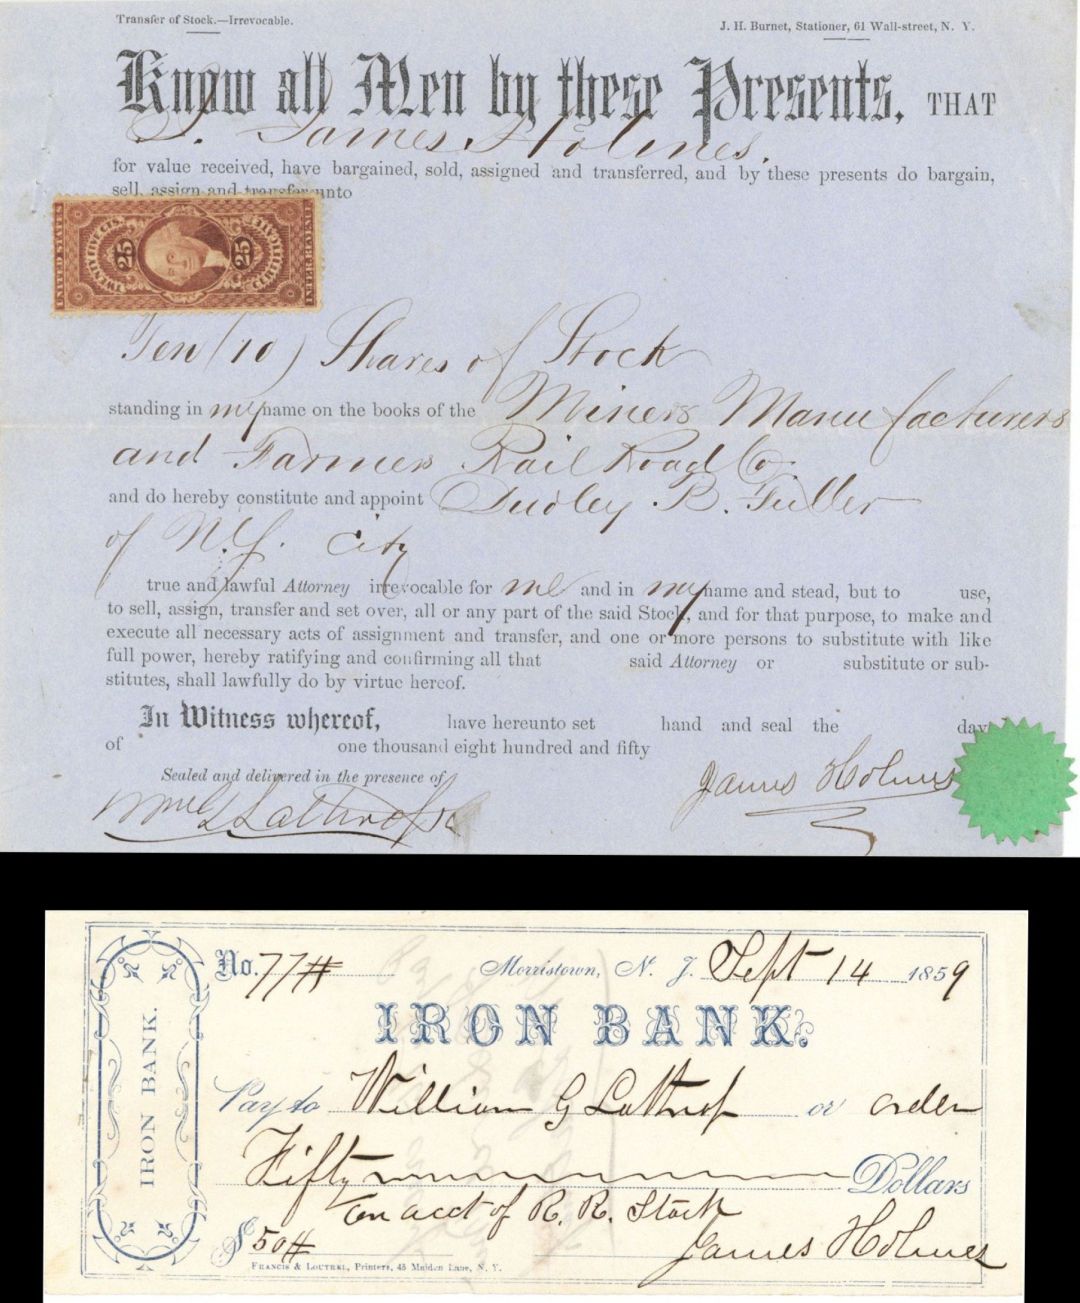 Transfer of Stock.—Irrevocable.
J. H. Burnet, Stationer, 61 Wall-street, N. Y.
Know all Men by these Presents, THAT
I. James Holmes.
for value received, have bargained, sold, assigned and transferred, and by these presents do bargain,
sell, assign and transfer unto
UNITED STATES
TWENTY FIVE CTS.
25
25
CERTIFICATE
INTER. REVENUE
Ten (10) Shares of Stock
standing in my name on the books of the Miners Manufacturers
and Farmers Rail Road Co
and do hereby constitute and appoint Dudley B. Fuller
of N.Y. City
true and lawful Attorney irrevocable for me and in my name and stead, but to use,
to sell, assign, transfer and set over, all or any part of the said Stock, and for that purpose, to make and
execute all necessary acts of assignment and transfer, and one or more persons to substitute with like
full power, hereby ratifying and confirming all that said Attorney or substitute or sub-
stitutes, shall lawfully do by virtue hereof.
In Witness whereof, have hereunto set hand and seal the day
of one thousand eight hundred and fifty
Sealed and delivered in the presence of
James Holmes
Wm G Lathrop
No. 77# Morristown, N. J. Sept 14 1859
IRON BANK.
IRON BANK.
Pay to William G Lathrop or order
Fifty Dollars
on acct of R. R. Stock
$50# James Holmes
FRANCIS & LOUTREL, Printers, 45 Maiden Lane, N. Y.